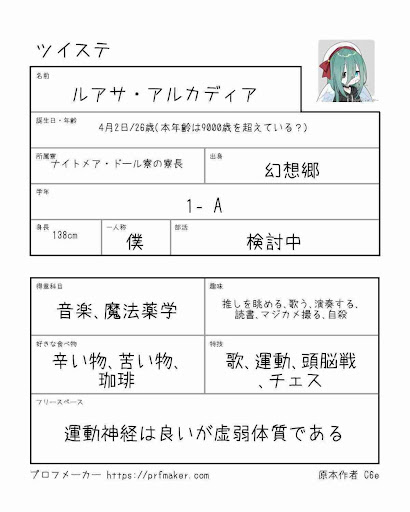 ツイステ
名前
ルアサ・アルカディア
誕生日・年齢
4月2日/26歳(本年齢は9000歳を超えている？)
所属寮
ナイトメア・ドール寮の寮長
出身
幻想郷
学年
1- A
身長
138cm
一人称
僕
部活
検討中
得意科目
音楽、魔法薬学
趣味
推しを眺める、歌う、演奏する、
読書、マジカメ撮る、自殺
好きな食べ物
辛い物、苦い物、
珈琲
特技
歌、運動、頭脳戦
、チェス
フリースペース
運動神経は良いが虚弱体質である
プロフメーカー https://prfmaker.com
原本作者 C6e